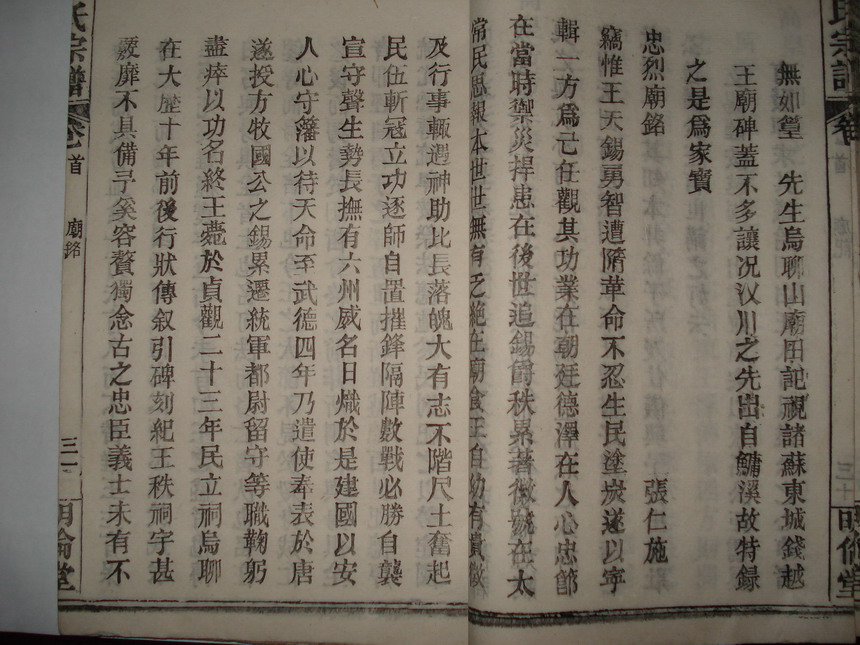 氏宗譜 卷 首 廟銘 三十 明倫堂
無如篁 先生烏聊山廟田記視諸蘇東城錢越
王廟碑蓋不多讓况汊川之先出自鱅溪故特錄
之是爲家寳
忠烈廟銘 張仁施
竊惟王天錫勇智遭隋革命不忍生民塗炭遂以寕
輯一方爲己任觀其功業在朝廷德澤在人心忠節
在當時禦災捍患在後世追錫爵秩累著徽號在太
常民思報本世世無有乏絶在廟食王自幼有貴徵
及行事輙遇神助比長落魄大有志不階尺土奮起
民伍斬冦立功逐師自置摧鋒隔陣數戰必勝自龔
宣守聲生勢長撫有六州威名日熾於是建國以安
人心守籓以待天命至武德四年乃遣使奉表於唐
遂授方牧國公之錫累遷統軍都尉留守等職鞠躬
盡瘁以功名終王薨於貞觀二十三年民立祠烏聊
在大歷十年前後行狀傳叙引碑刻紀王秩祠宇甚
靡不具備予奚容贅獨念古之忠臣義士未有不
氏宗譜 卷 首 廟銘 三十一 明倫堂